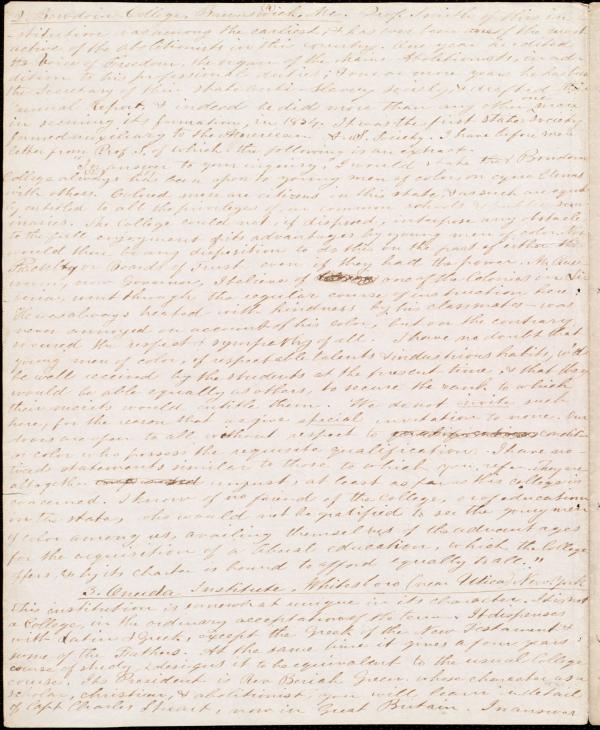 2. Bowdoin College, Brunswick, Me. Prof. Smith of this in-
stitution was among the earliest, & has ever been one of the most
active of the abolitionists in this country. One year he edited
the Advocate of Freedom, the organ of the Maine Abolitionists, in ad-
dition to his professional duties; four or more years he has been
the Secretary of their state Anti-Slavery Society & drafted the
annual Report, & indeed he did more than any other one man
in securing its formation, in 1834. It was the first state Society
formed auxiliary to the American A. S. Society. I have before me a
letter from Prof. S. of which the following is an extract.
"In answer to your inquiry, I would state that Bowdoin
College always has been open to young men of color on equal terms
with others. Colored men are citizens in this state, & as such are equal-
ly entitled to all the privileges of our common schools & public semi-
naries. The College could not, if disposed, interpose any obstacle
to the full enjoyment of its advantages by young men of color. Nor
would there be any disposition to do this on the part of either the
Faculty or Boards of Trust even if they had the power. Mr. Russ-
wurm now Governor, of one of the Colonies in Li-
beria went through the regular course of instruction here.
He was always treated with kindness by his classmates - was
never annoyed on account of his color, but on the contrary
received the respect & sympathy of all. I have no doubt that
young men of color, of respectable talents & industrious habits, w'd
be well received by the students at the present time, & that they
would be able equally as others, to secure the rank to which
their merits would entitle them. We do not invite such
here, for the reason that we give special invitation to none. Our
doors are open to all without respect to condition
or color who possess the requisite qualification. I have no-
ticed statements similar to those to which you refer. They are
altogether unjust, at least as far as this college is
concerned. I know of no friend of the college, or of education
in the state, who would not be gratified to see the young men
of color among us, availing themselves of the advantages
for the acquisition of a liberal education, which the College
offers, & by its charter is bound to afford equally to all."
3. Oneida Institute, Whitesboro (near Utica) New York
This institution is somewhat unique in its character. It is not
a College, in the ordinary acceptation of the term. It dispenses
with Latin & Greek, except the Greek of the New Testament &
some of the Fathers. At the same time it gives a four years
course of study, & designs it to be equivalent to the usual College
course. Its President is Rev Beriah Green, whose character as a
scholar, christian, & abolitionist you will learn in detail
of Capt Charles Stuart, now in Great Britain. In answer